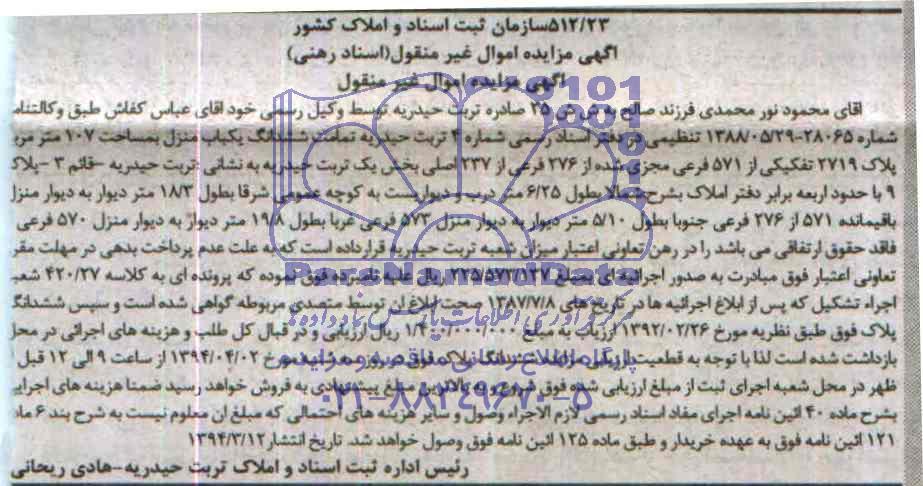 ۵۱۲/۲۳سازمان ثبت اسناد و املاک کشور
آگهی مزایده اموال غیر منقول(اسناد رهنی)
آگهی مزایده اموال غیر منقول
اقای محمود نور محمدی فرزند صالح به ش ش ۲۵ صادره تربت حیدریه توسط وکیل رسمی خود اقای عباس کفاش طبق وکالتنامه
شماره ۲۸۰۶۵-۱۳۸۸/۰۵/۲۹ تنظیمی در دفتر اسناد رسمی شماره ۴ تربت حیدریه تمامت ششدانگ یکباب منزل بمساحت ۱۰۷ متر
پلاک ۲۷۱۹ تفکیکی از ۵۷۱ فرعی مجزی شده از ۲۷۶ فرعی از ۲۳۷ اصلی بخش یک تربت حیدریه به نشانی :تربت حیدریه -قائم ۳ -پلاک
۹ با حدود اربعه برابر دفتر املاک بشرح شمالا بطول ۶/۲۵ متر درب و دیواریست به کوچه عمومی شرقا بطول ۱۸/۳ متر دیوار به دیوار منزل
باقیمانده ۵۷۱ از ۲۷۶ فرعی جنوبا بطول ۵/۱۰ متر دیوار به دیوار منزل ۵۷۳ فرعی غربا بطول ۱۹/۸ متر دیوار به دیوار منزل ۵۷۰ فرعی
فاقد حقوق ارتفاقی می باشد را در رهن تعاونی اعتبار میزان شعبه تربت حیدریه قرارداده است که به علت عدم پرداخت بدهی در مهلت مقرر
تعاونی اعتبار فوق مبادرت به صدور اجرائیه ای به مبلغ ۲۲۵/۵۷۲/۱۲۷ ریال علیه نامبرده فوق نموده که پرونده ای به کلاسه ۴۲۰/۲۷
اجراء تشکیل که پس از ابلاغ اجرائیه ها در تاریخ های ۱۳۸۷/۷/۸ صحت ابلاغ ان توسط متصدی مربوطه گواهی شده است و سپس ششدانگ
پلاک فوق طبق نظریه مورخ ۱۳۹۲/۰۲/۲۶ ارزیاب به مبلغ ریال ارزیابی و در قبال کل طلب و هزینه های اجرائی در محل
بازداشت شده است لذا با توجه به قطعیت ارزیابی مزایده ششدانگ پلاک فوق در روز سه شنبه مورخ ۱۳۹۴/۰۴/۰۲ از ساعت ۹ الی ۱۲ قبل از
ظهر در محل شعبه اجرای ثبت از مبلغ ارزیابی شده فوق شروع و به بالاترین مبلغ پیشنهادی به فروش خواهد رسید ضمنا هزینه های اجرایی
بشرح ماده ۴۰ ائین نامه اجرای مفاد اسناد رسمی لازم الاجراء وصول و سایر هزینه های احتمالی که مبلغ ان معلوم نیست به شرح بند ۶ ماده
۱۲۱ ائین نامه فوق به عهده خریدار و طبق ماده ۱۲۵ ائین نامه فوق وصول خواهد شد. تاریخ انتشار۱۳۹۴/۳/۱۲
رئیس اداره ثبت اسناد و املاک تربت حیدریه-هادی ریحانی
ParsNamadData
مرکز فرآوری اطلاعات پارس نماد داده ها
پایگاه اطلاع رسانی مناقصه و مزایده
۰۲۱-۸۸۳۴۹۶۷۰-۵